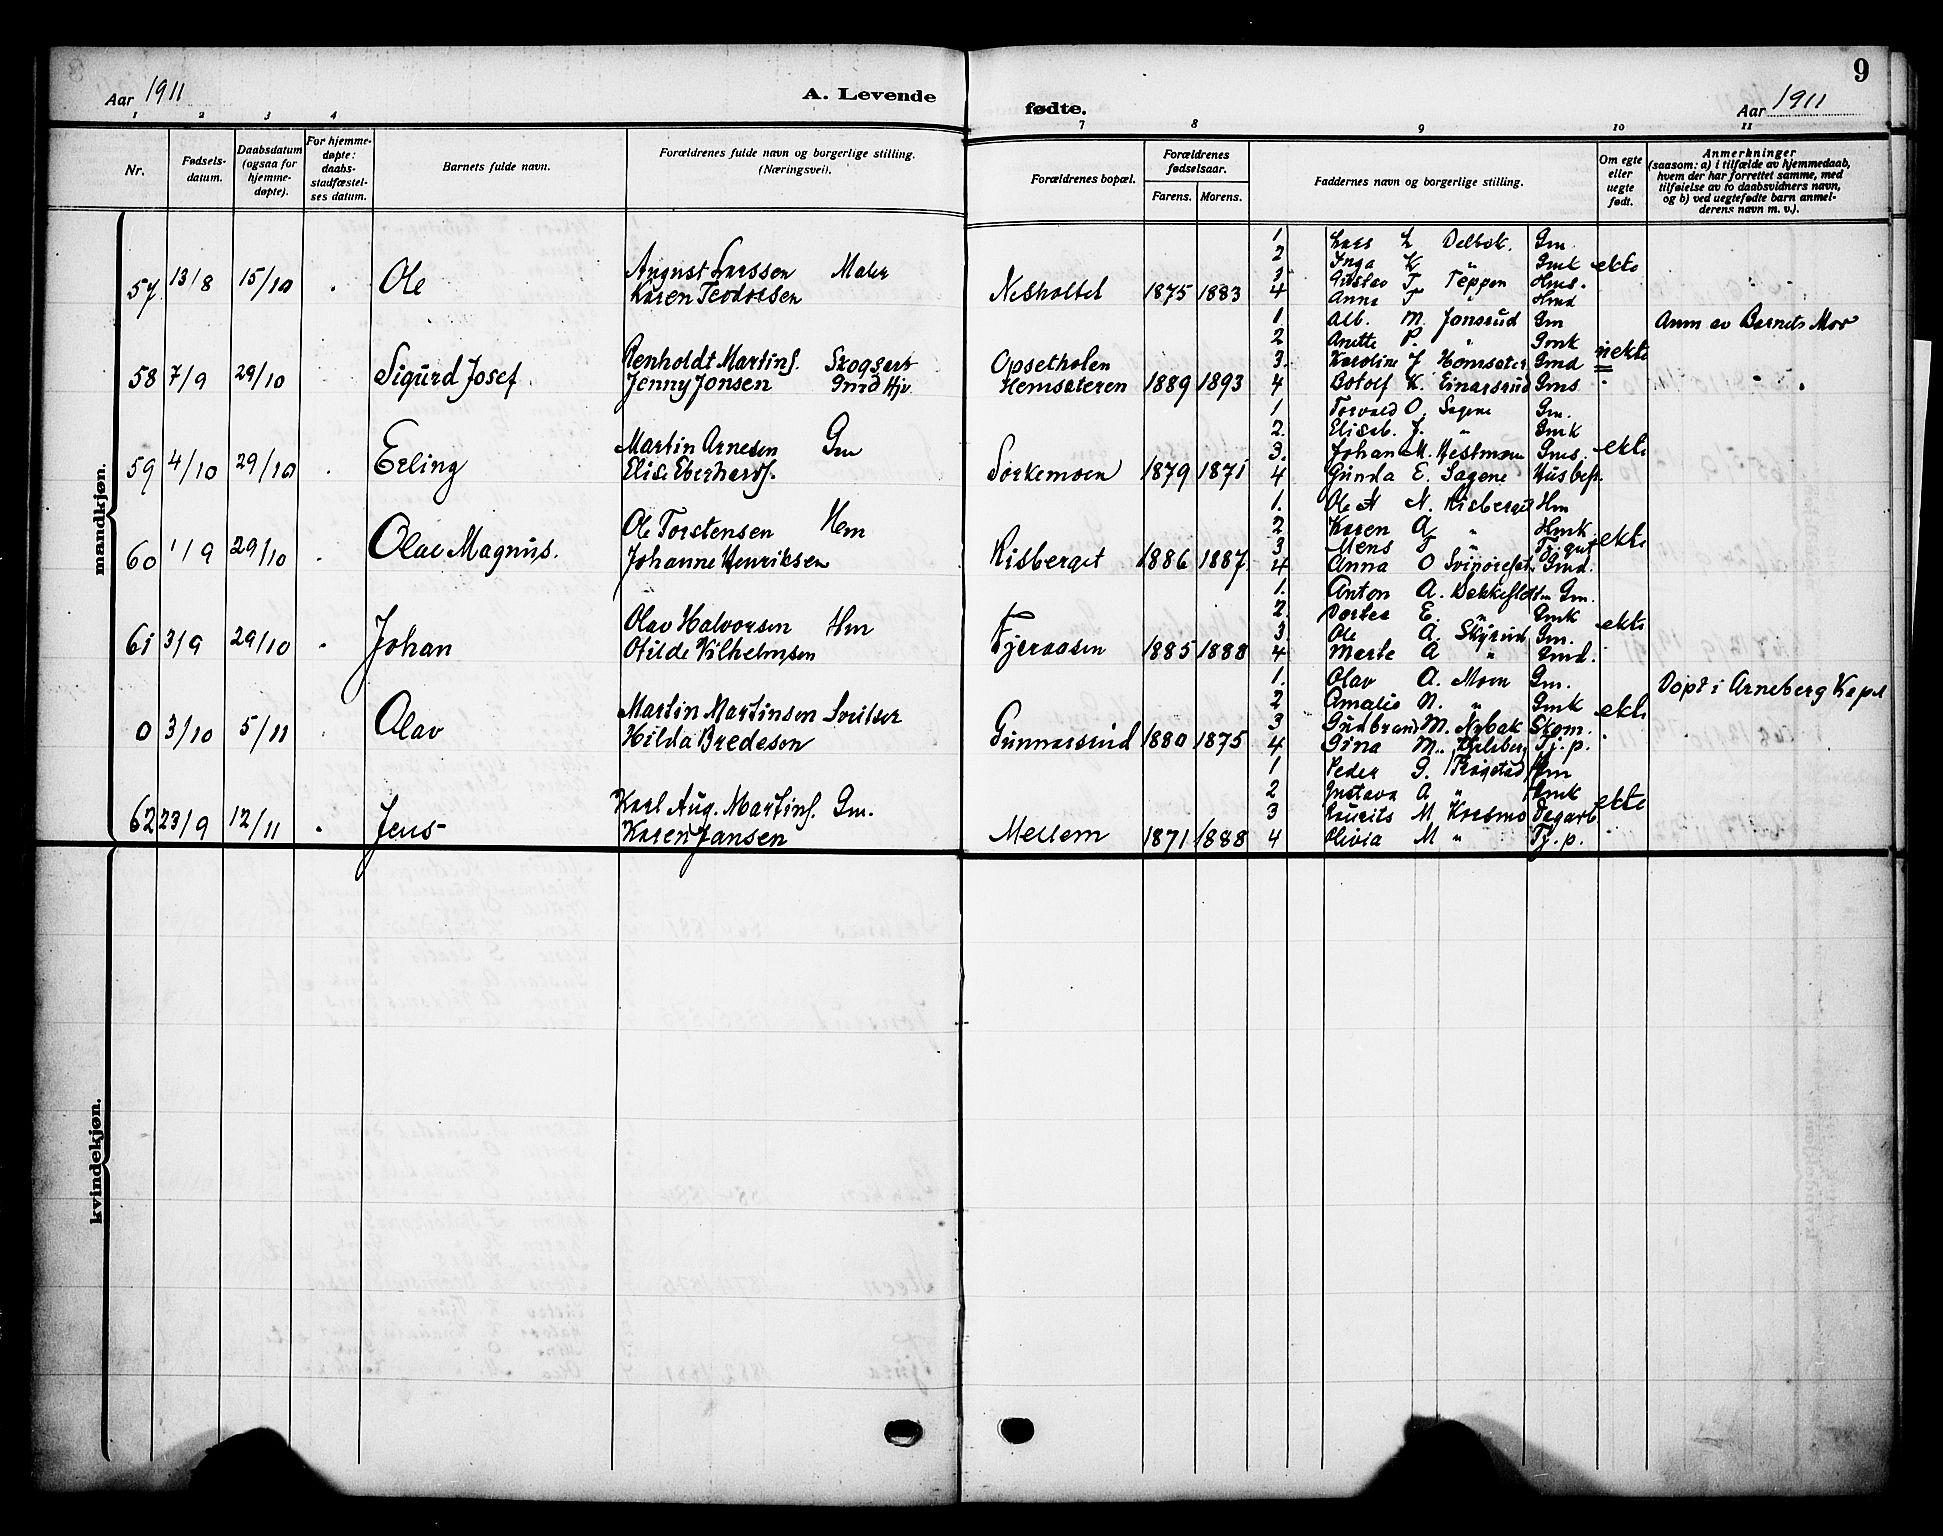 9
Aar 1911
A. Levende
fødte.
Aar 1911
1 2 3 4 7 8 9 10 11
Nr.
Fødsels-
datum.
Daabsdatum
(ogsaa for
hjemme-
døpte).
For hjemme-
døpte:
daabs-
stadfæstel-
ses datum.
Barnets fulde navn.
Forældrenes fulde navn og borgerlige stilling.
(Næringsvei).
Forældrenes bopæl.
Forældrenes
fødselsaar.
Farens. Morens.
Faddernes navn og borgerlige stilling.
Om egte
eller
uegte
født.
Anmerkninger
(saasom: a) i tilfælde av hjemmedaab,
hvem der har forrettet samme, med
tilføielse av to daabsvidners navn,
og b) ved uegtefødte barn anmel-
derens navn m. v.).
mandkjøn.
57 13/8 15/10 Ole
August Larssen Maler
Karen Teodorsen
1875 1883
1. Lars L Delbæk. Gm.
2 Inga K " Gmk ekte
3 Gustav T Teppen Hms.
4 Anna T " Hmd
58 7/9 29/10 Sigurd Josef
Renholdt Martins. Skogsarb
Jenny Jonsen Gmd Hjv
Opsetholen
Hemsæteren 1889 1893
Anm av Barnets Mor
1. Alb. M. Jonsrud Gm
2 Anette P. " Gmk
3. Karoline J Homsæter Gmd uekte
4 Botolf K. Einarsrud Gms
59 4/10 29/10 Erling
Martin Arnesen Gm
Elise Eberhards.
Sorkemoen 1879 1871
1 Torvald O. Sagene Gm.
2. Elisab. J. " Gmk
3. Johan M. Westmoen Gms. ekte
4 Gunda E. Sagene Husbest.
60 1/9 29/10 Olav Magnus.
Ole Torstensen Hm
Johanne Henriksen
Risberget 1886 1887
1. Ole N. Risberget Hm
2 Karen A " Hmk ekte
3 Mens T " Tj.gut
4 Anna O Gmd.
61 3/9 29/10 Johan
Olav Halvorsen Hm
Otilde Vilhelmsen
Fjeraasen 1885 1888
1. Anton A. Gm.
2. Dortea E. " Gmk ekte
3. Ole A. Skyrud Gm.
4 Marte A " Gmd.
0 3/10 5/11 Olav
Martin Martinsen Sveitser
Hilda Bredesen
Gunnarsrud 1880 1875
Døpt i Arneberg Kapel
1. Olav A. Moen Gm.
2 Amalie N. " Gmk ekte
3 Gudbrand M. Nybak Skom.
4 Gina M. Tj.p.
62 23/9 12/11 Jens
Karl Aug. Martins. Gm.
Karen Jansen
Mellem 1871 1888
1 Peder G. Kragstad Gm
2 Gustava A " Gmk ekte
3 Laurits M Korsmo Vegarb.
4 Olivia M " Tj.p.
kvindekjøn.